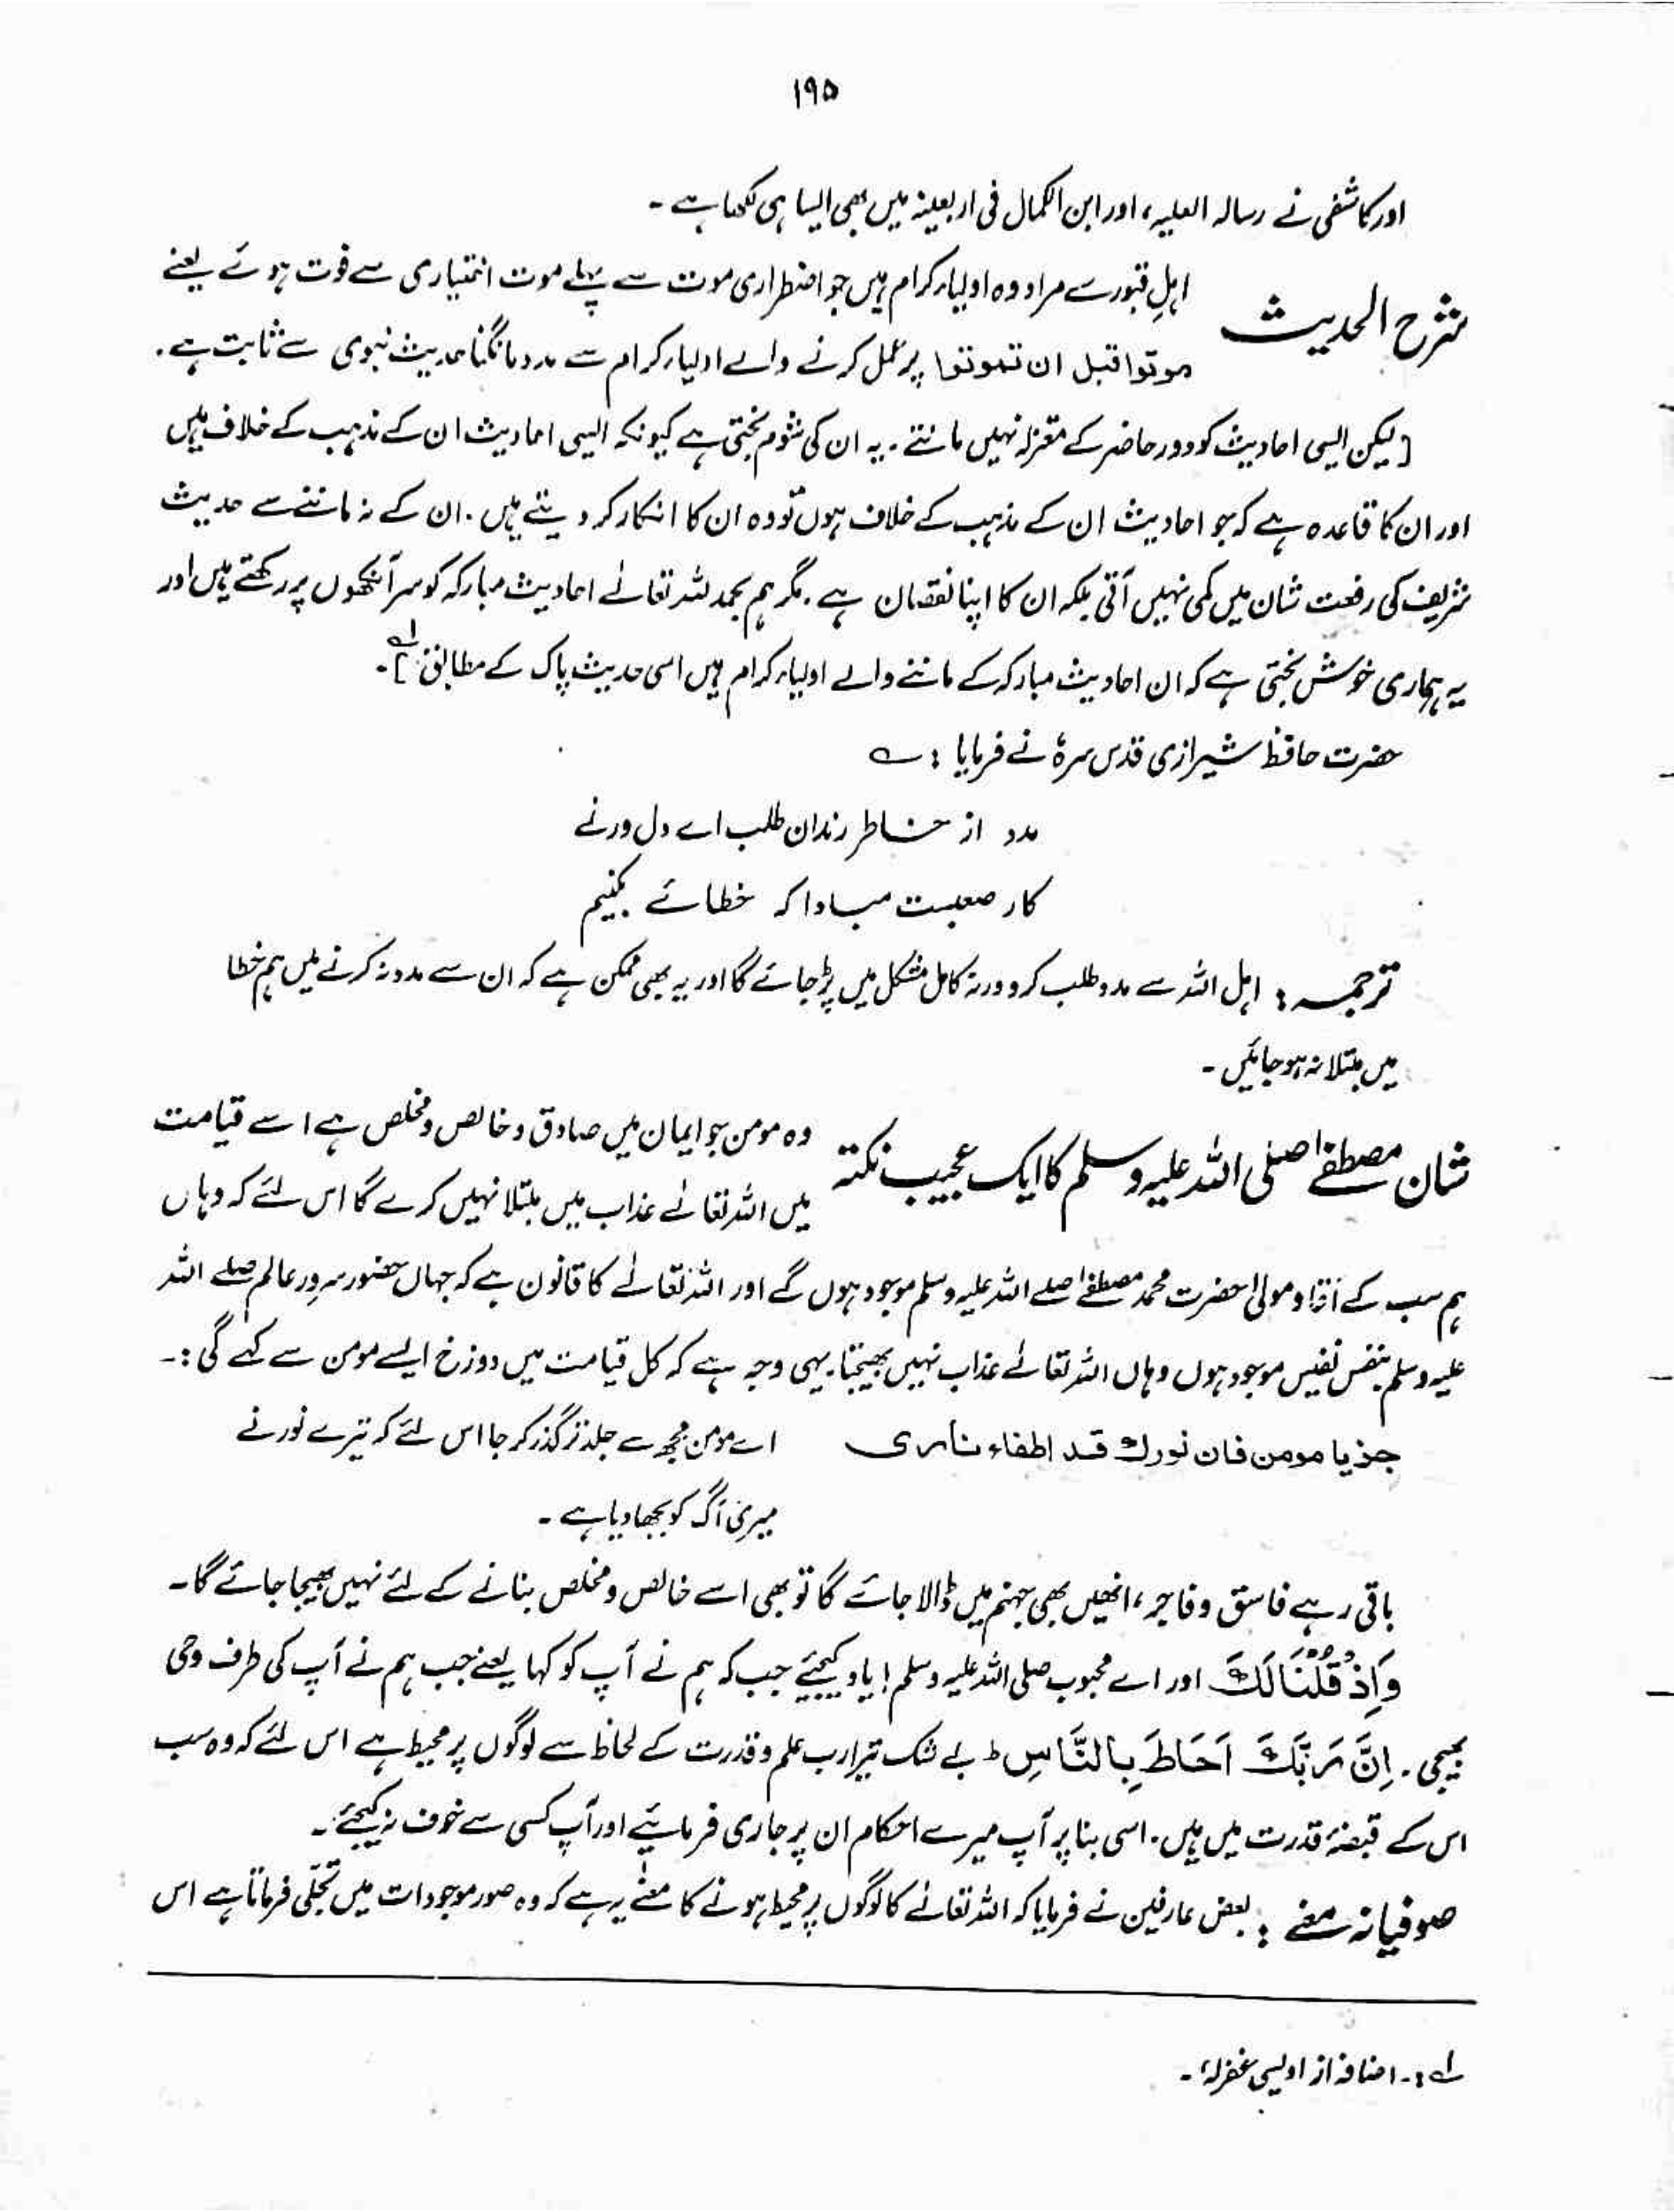 ۱۹۵
اور کاشفی نے رسالہ العلیہ، اور ابن الکمال فی اربعینہ میں بھی ایسا ہی لکھا ہے۔
شرح الحدیث
اہلِ قبور سے مراد وہ اولیاء کرام ہیں جو اضطراری موت سے پہلے موت اختیاری سے فوت ہوئے یعنے
موتوا قبل ان تموتوا پر عمل کرنے والے اولیاء کرام سے مدد مانگنا حدیث نبوی سے ثابت ہے۔
[لیکن ایسی احادیث کو دور حاضر کے معتزلہ نہیں مانتے۔ یہ ان کی شوم بختی ہے کیونکہ ایسی احادیث ان کے مذہب کے خلاف ہیں
اور ان کا قاعدہ ہے کہ جو احادیث ان کے مذہب کے خلاف ہوں تو وہ ان کا انکار کر دیتے ہیں۔ ان کے نہ ماننے سے حدیث
شریف کی رفعت شان میں کمی نہیں آتی بلکہ ان کا اپنا نقصان ہے۔ مگر ہم بحمد للہ تعالےٰ احادیث مبارکہ کو سر آنکھوں پر رکھتے ہیں اور
یہ ہماری خوش بختی ہے کہ ان احادیث مبارکہ کے ماننے والے اولیاء کرام ہیں اسی حدیث پاک کے مطابق]۱ے۔
حضرت حافظ شیرازی قدس سرہٗ نے فرمایا : ے
مدد از خاطر رندان طلب اے دل ورنے
کار صعبست مبادا کہ خطائے بکنیم
ترجمہ : اہل اللہ سے مدد طلب کرو ورنہ کامل مشکل میں پڑ جائے گا اور یہ بھی ممکن ہے کہ ان سے مدد نہ کرنے میں ہم خطا
میں مبتلا نہ ہو جائیں۔
شان مصطفےٰ صلی اللہ علیہ وسلم کا ایک عجیب نکتہ
وہ مومن جو ایمان میں صادق و خالص و مخلص ہے اسے قیامت
میں اللہ تعالےٰ عذاب میں مبتلا نہیں کرے گا اس لئے کہ وہاں
ہم سب کے آقا و مولیٰ حضرت محمد مصطفےٰ صلے اللہ علیہ وسلم موجود ہوں گے اور اللہ تعالےٰ کا قانون ہے کہ جہاں حضور سرور عالم صلے اللہ
علیہ وسلم بنفس نفیس موجود ہوں وہاں اللہ تعالےٰ عذاب نہیں بھیجتا۔ یہی وجہ ہے کہ کل قیامت میں دوزخ ایسے مومن سے کہے گی :۔
جز یا مومن فان نورك قد اطفاء ناری
اے مومن مجھ سے جلد تر گذر کر جا اس لئے کہ تیرے نور نے
میری آگ کو بجھا دیا ہے۔
باقی رہے فاسق و فاجر، انھیں بھی جہنم میں ڈالا جائے گا تو بھی اسے خالص و مخلص بنانے کے لئے نہیں بھیجا جائے گا۔
وَاِذْ قُلْنَا لَكَ اور اے محبوب صلی اللہ علیہ وسلم! یاد کیجئے جب کہ ہم نے آپ کو کہا یعنے جب ہم نے آپ کی طرف وحی
بھیجی۔ اِنَّ رَبَّكَ اَحَاطَ بِالنَّاسِ ط بے شک تیرا رب علم و قدرت کے لحاظ سے لوگوں پر محیط ہے اس لئے کہ وہ سب
اس کے قبضۂ قدرت میں ہیں۔ اسی بنا پر آپ میرے احکام ان پر جاری فرمائیے اور آپ کسی سے خوف نہ کیجئے۔
صوفیانہ معنے : بعض عارفین نے فرمایا کہ اللہ تعالےٰ کا لوگوں پر محیط ہونے کا معنےٰ یہ ہے کہ وہ صور موجودات میں تجلّی فرماتا ہے اس
۱ے :۔ اضافہ از اویسی غفرلہٗ۔